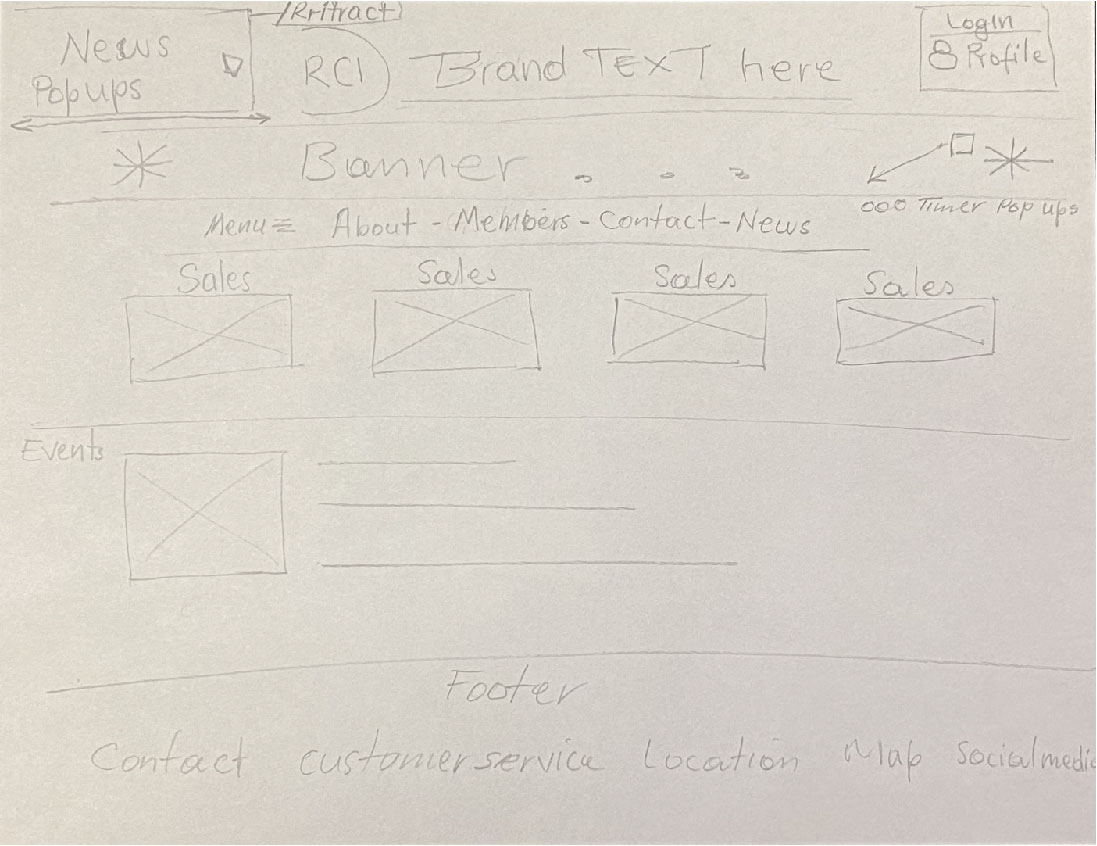 News
Pop ups
/Rritract
RCI
Brand TEXT here
Login
Profile
Banner
000 Timer Pop ups
Menu About - Members - Contact - News
Sales
Sales
Sales
Sales
Events
Footer
Contact customer service Location Map Socialmedia